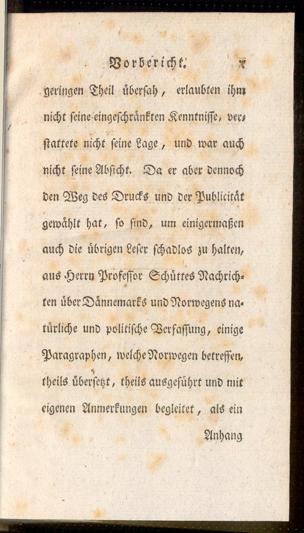 Vorbericht. X
geringen Theil übersah, erlaubten ihm
nicht seine eingeschränkten Kenntnisse, ver-
stattete nicht seine Lage, und war auch
nicht seine Absicht. Da er aber dennoch
den Weg des Drucks und der Publicität
gewählt hat, so sind, um einigermaßen
auch die übrigen Leser schadlos zu halten,
aus Herrn Professor Schüttes Nachrich-
ten über Dännemarks und Norwegens na-
türliche und politische Verfassung, einige
Paragraphen, welche Norwegen betreffen,
theils übersetzt, theils ausgeführt und mit
eigenen Anmerkungen begleitet, als ein
Anhang